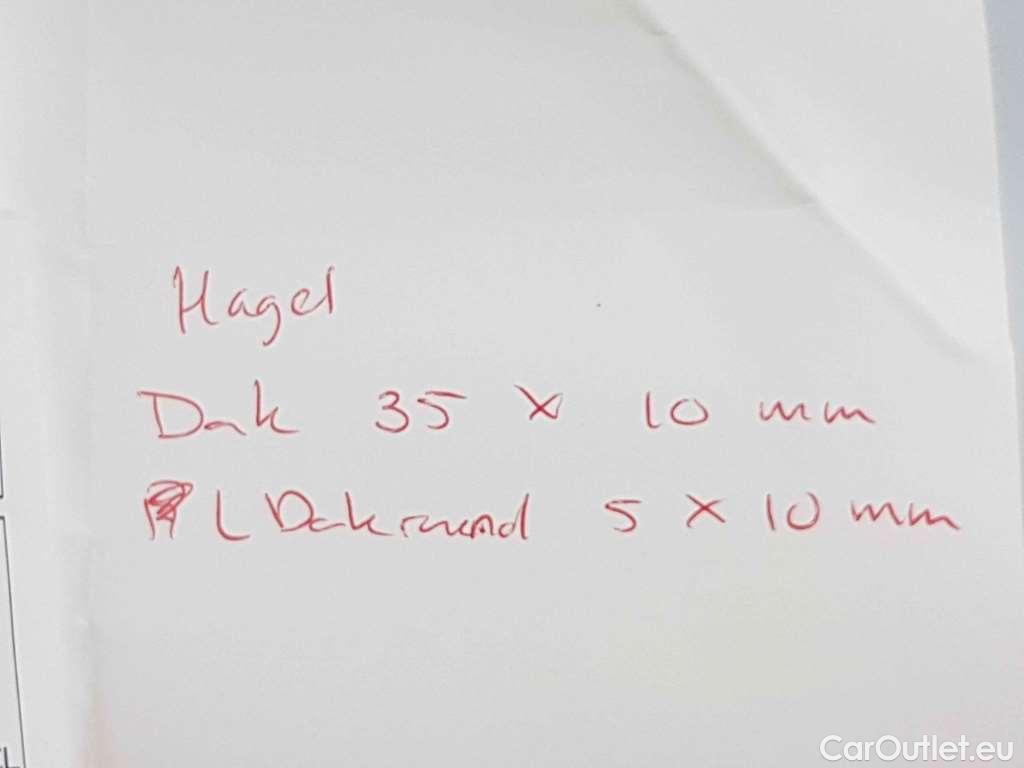 Hagel
Dak 35 x 10 mm
L Dakrand 5 x 10 mm
CarOutlet.eu